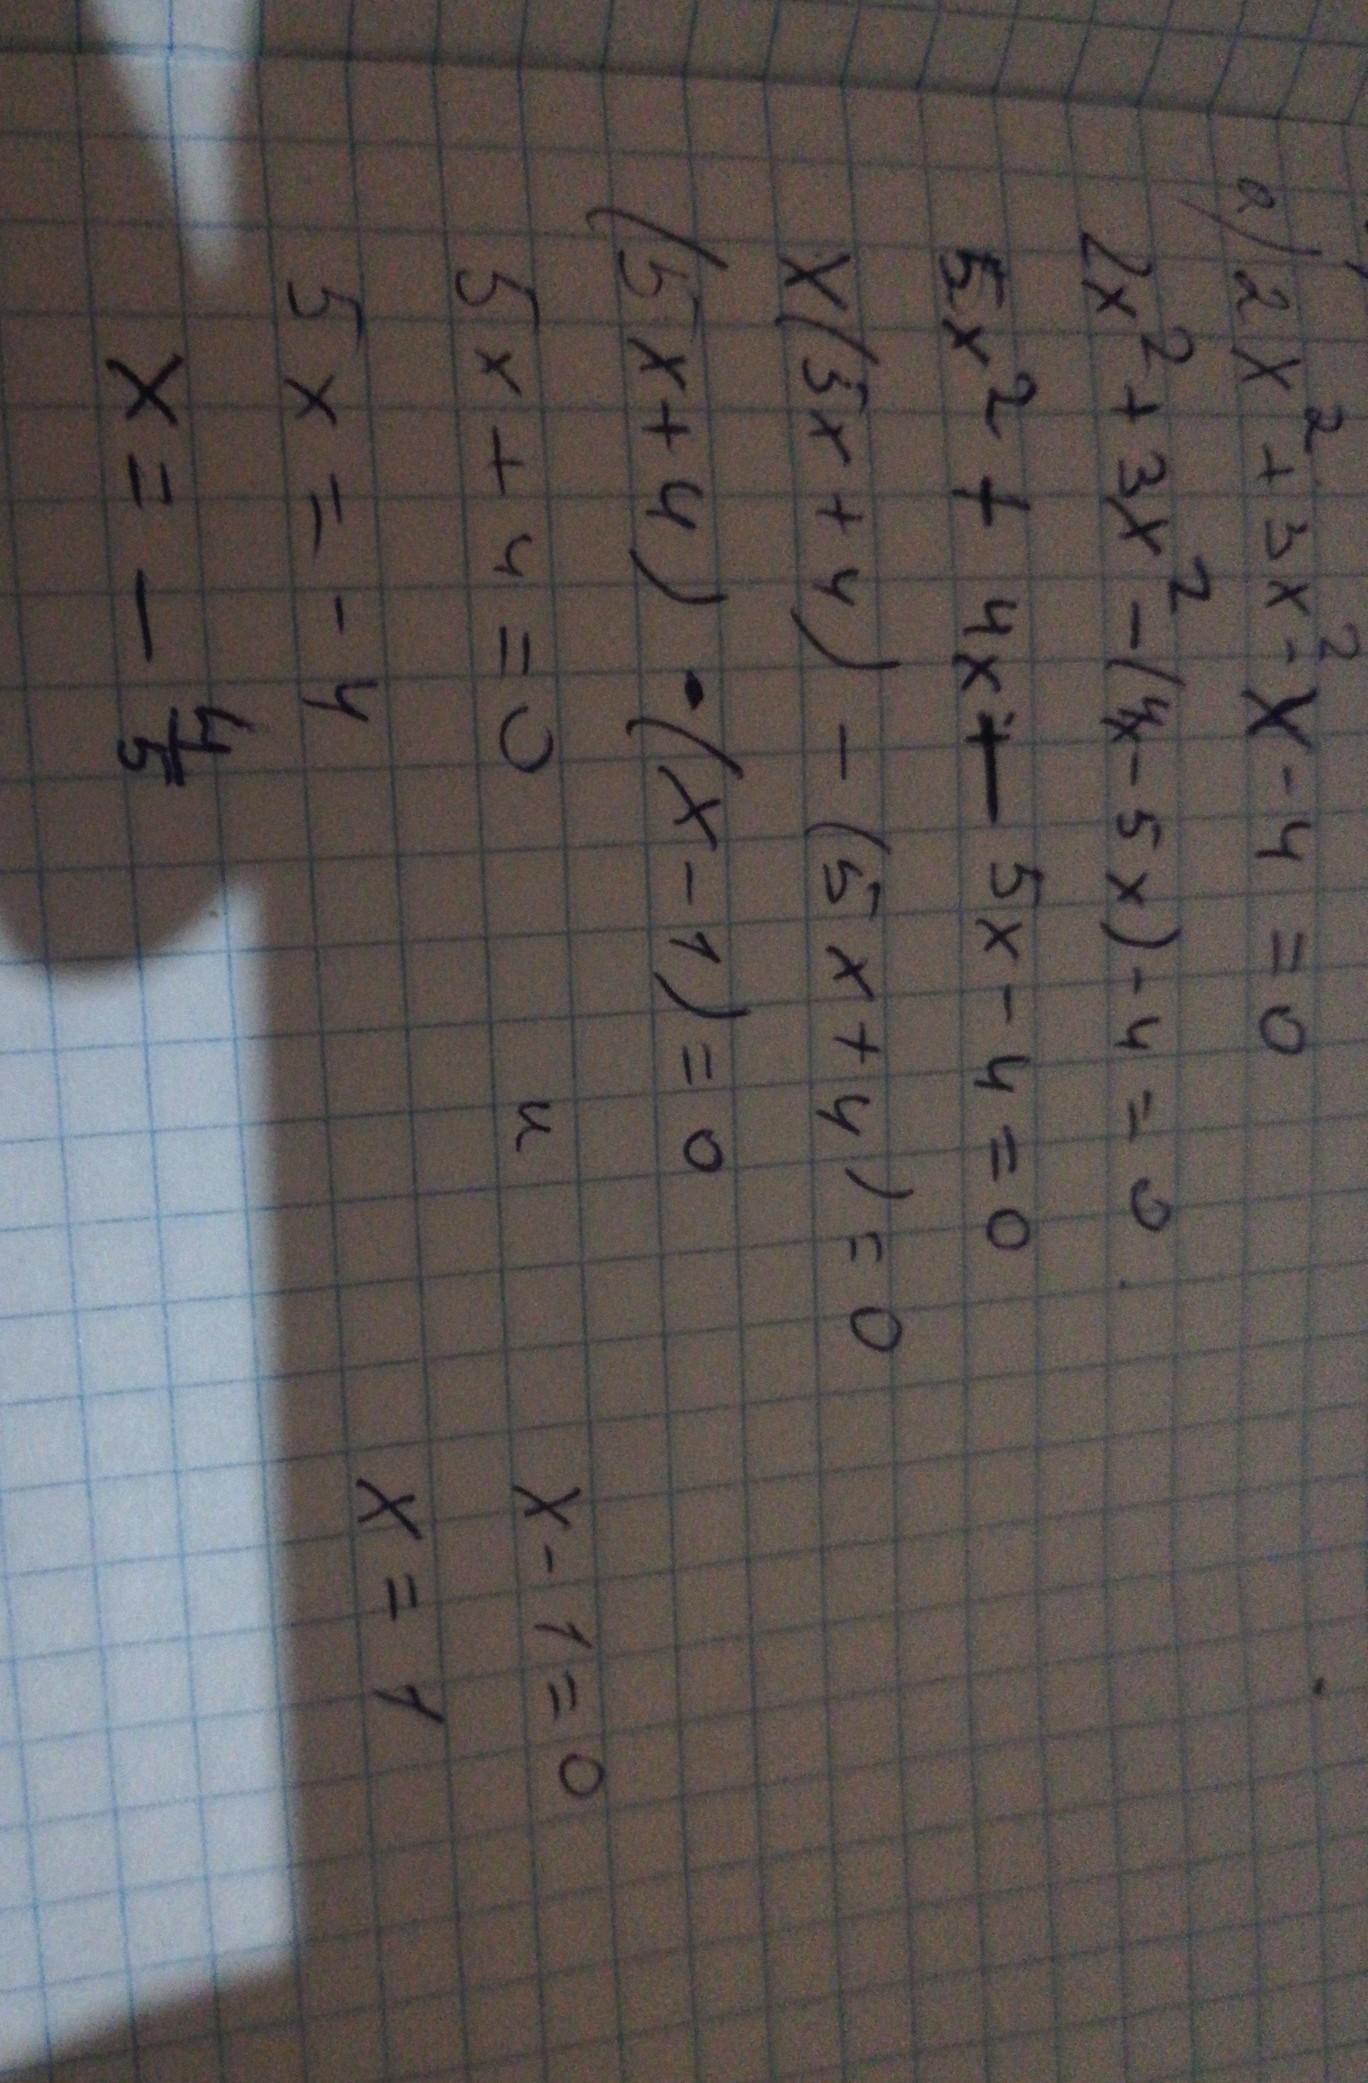 a) 2x² + 3x² - x - 4 = 0
2x² + 3x² - (4x - 5x) - 4 = 0
5x² + 4x - 5x - 4 = 0
x(5x + 4) - (5x + 4) = 0
(5x + 4) · (x - 1) = 0
5x + 4 = 0 и x - 1 = 0
5x = -4 x = 1
x = - 4/5